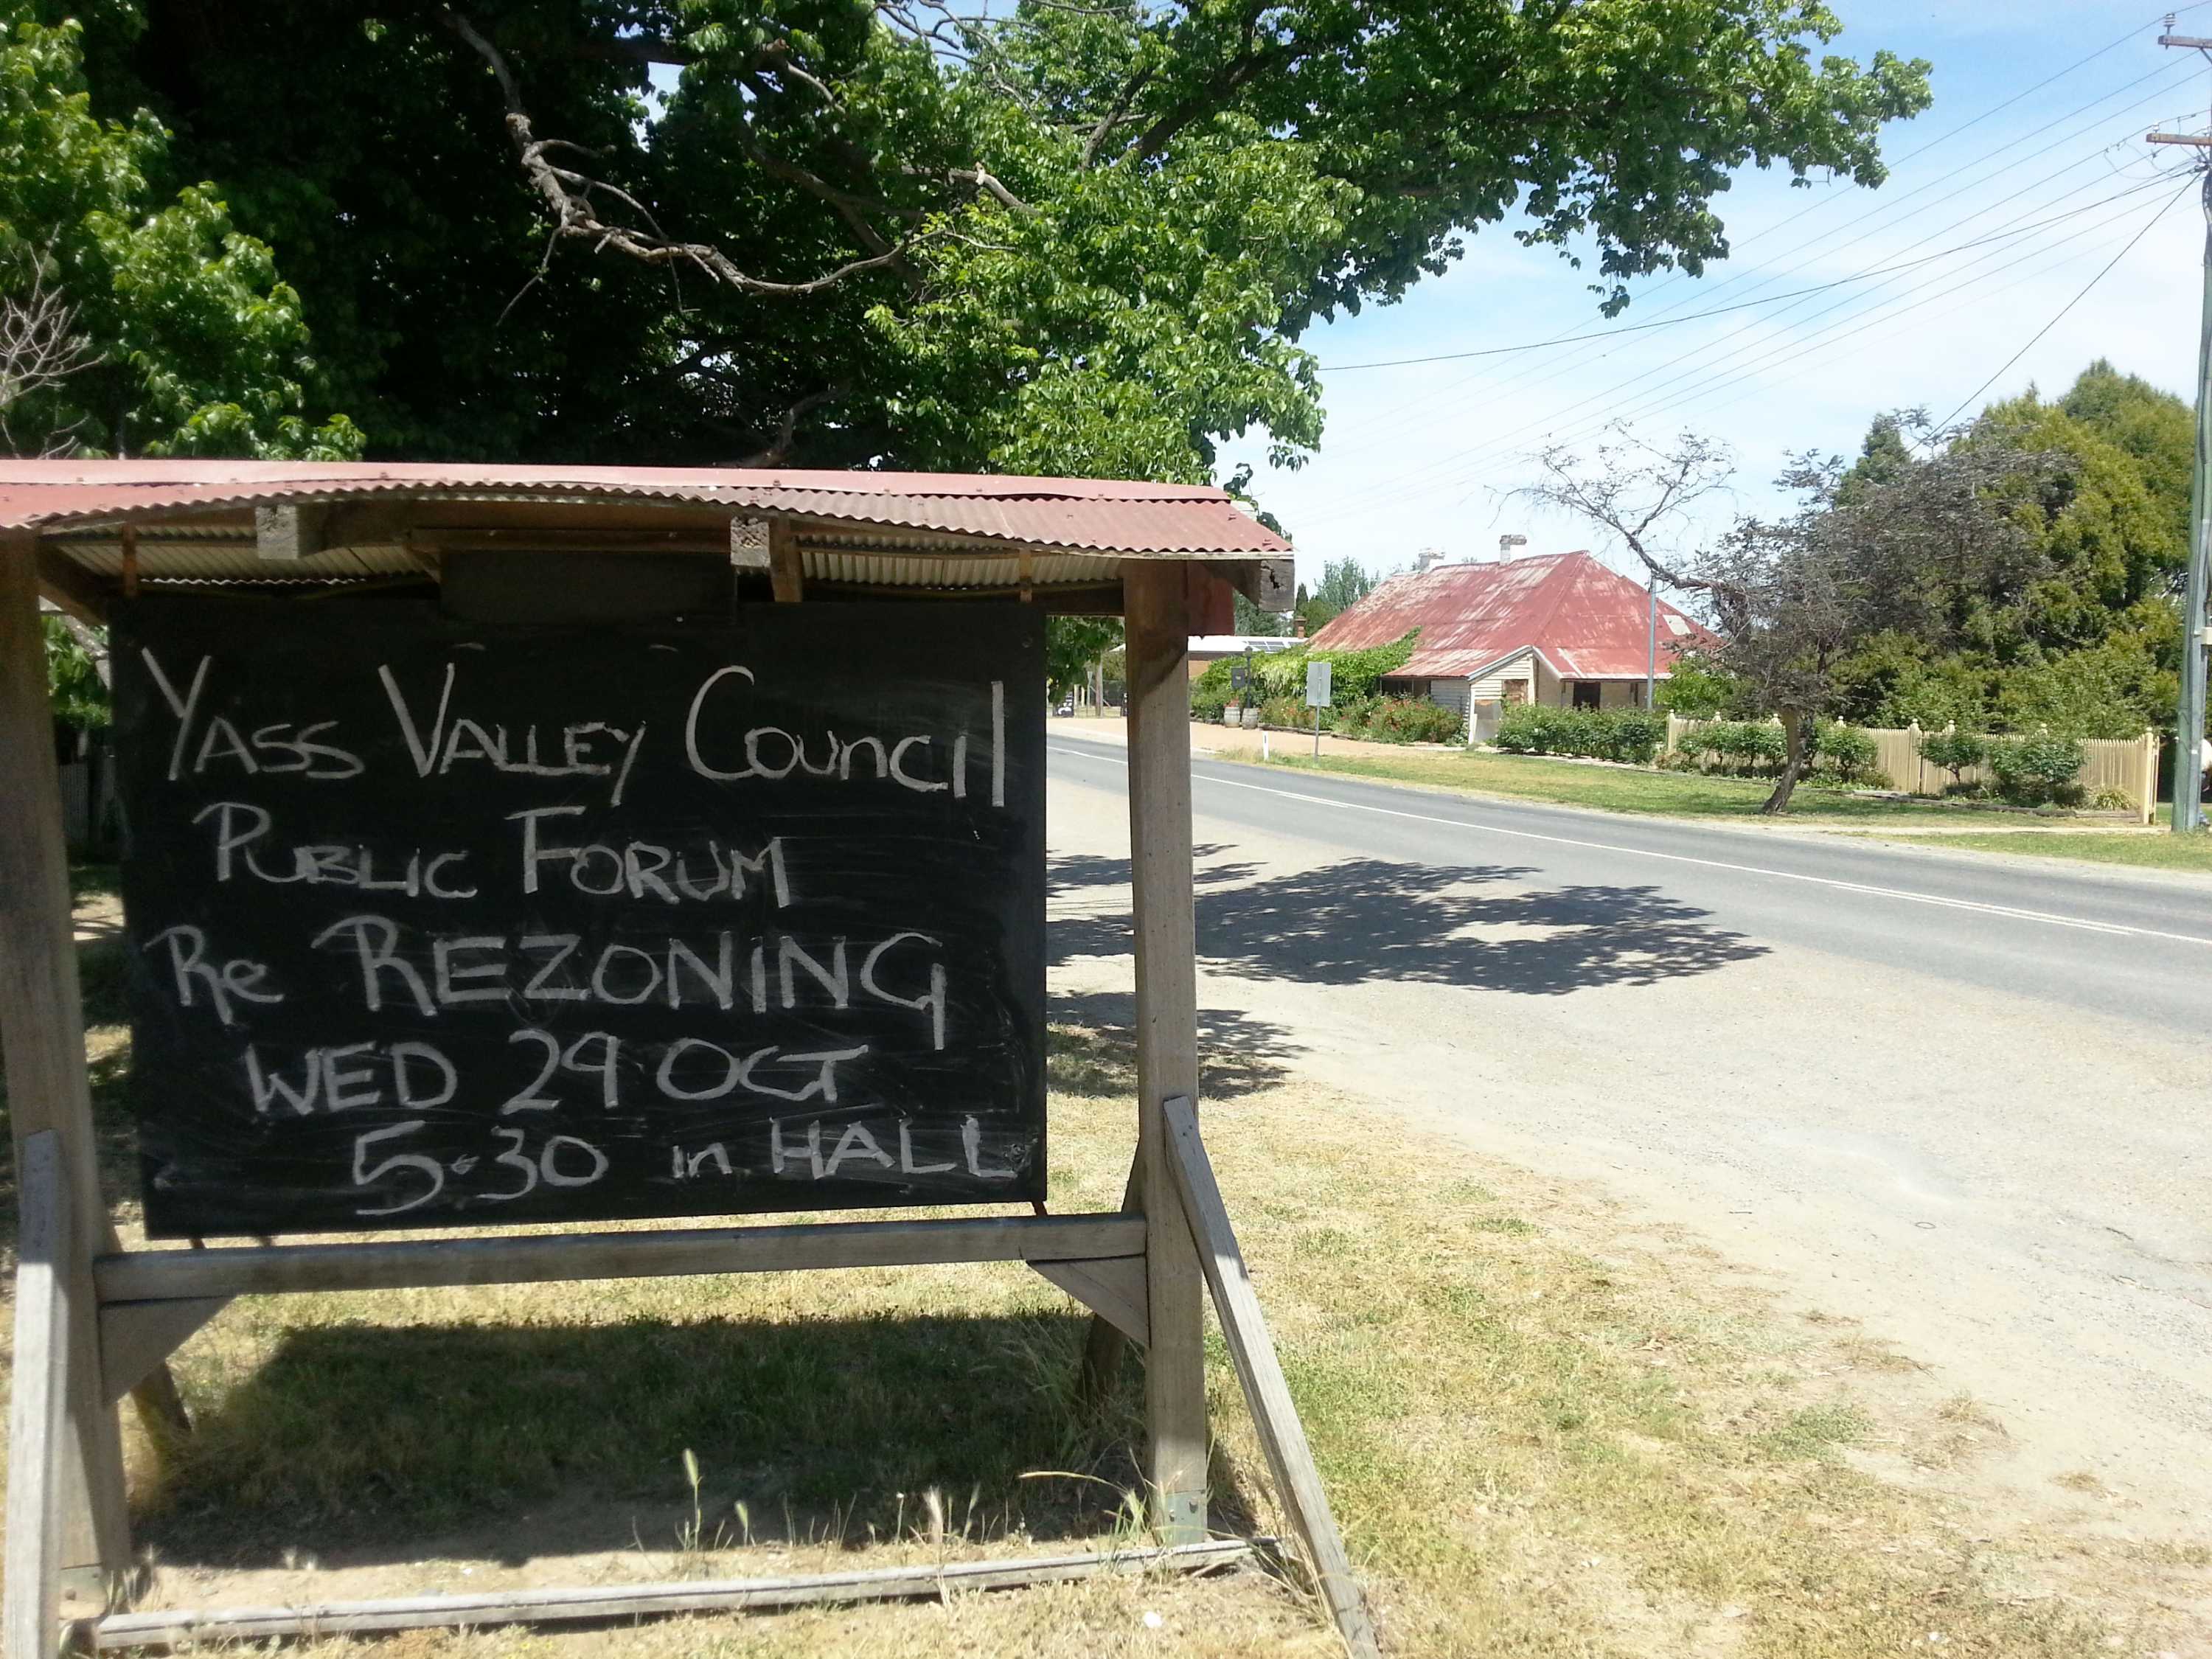 Yass Valley Council
Public Forum
Re Rezoning
WED 29 OCT
5.30 in HALL